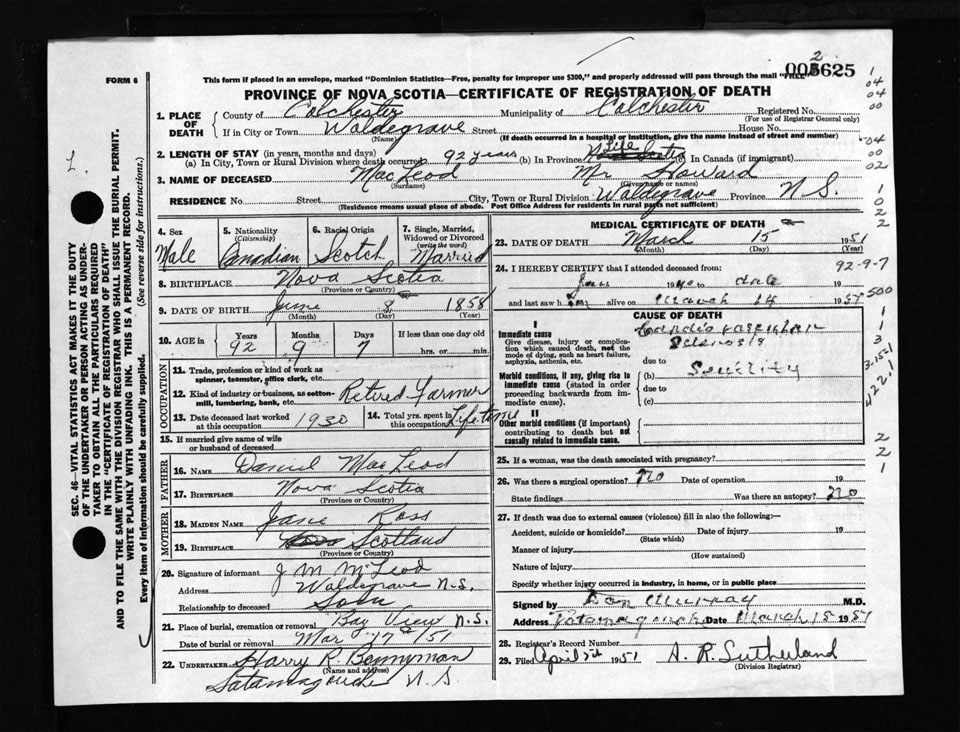 FORM 6
2
005625
This form if placed in an envelope, marked "Dominion Statistics—Free, penalty for improper use $300," and properly addressed will pass through the mail "FREE"
PROVINCE OF NOVA SCOTIA—CERTIFICATE OF REGISTRATION OF DEATH
1. PLACE OF DEATH
County of Colchester Municipality of Colchester Registered No.
(For use of Registrar General only)
If in City or Town Waldegrave Street House No.
(Name) (If death occurred in a hospital or institution, give the name instead of street and number)
2. LENGTH OF STAY (in years, months and days)
(a) In City, Town or Rural Division where death occurred 92 years (b) In Province Life Nova Scotia (c) In Canada (if immigrant)
3. NAME OF DECEASED MacLeod Mr Howard
(Surname) (Given name or names)
RESIDENCE No. Street City, Town or Rural Division Waldegrave Province N S.
(Residence means usual place of abode. Post Office Address for residents in rural parts not sufficient)
4. Sex Male
5. Nationality (Citizenship) Canadian
6. Racial Origin Scotch
7. Single, Married, Widowed or Divorced (write the word) Married
8. BIRTHPLACE Nova Scotia
(Province or Country)
9. DATE OF BIRTH June 8 1858
(Month) (Day) (Year)
10. AGE in Years Months Days If less than one day old
92 9 7 hrs. or min.
OCCUPATION
11. Trade, profession or kind of work as spinner, teamster, office clerk, etc.
12. Kind of industry or business, as cotton-mill, lumbering, bank, etc. Retired Farmer
13. Date deceased last worked at this occupation 1930
14. Total yrs. spent in this occupation Life time
15. If married give name of wife or husband of deceased
FATHER
16. NAME Daniel MacLeod
17. BIRTHPLACE Nova Scotia
(Province or Country)
MOTHER
18. MAIDEN NAME Jane Ross
19. BIRTHPLACE Scotland
(Province or Country)
20. Signature of informant J M McLeod
Address Waldegrave N.S.
Relationship to deceased Son
21. Place of burial, cremation or removal Bay View N.S.
Date of burial or removal Mar 17 /51
22. UNDERTAKER Harry R. Bonnyman
(Name and address)
Tatamagouche N.S.
MEDICAL CERTIFICATE OF DEATH
23. DATE OF DEATH March 15 1951
(Month) (Day) (Year)
24. I HEREBY CERTIFY that I attended deceased from:
Jan 1940 to date 19
and last saw him alive on March 14 1951
CAUSE OF DEATH
I
Immediate cause
Give disease, injury or complication which caused death, not the mode of dying, such as heart failure, asphyxia, asthenia, etc.
Cardio vascular
Sclerosis
due to
Morbid conditions, if any, giving rise to immediate cause (stated in order proceeding backwards from immediate cause).
(b) Senility
due to
(c)
II
Other morbid conditions (if important) contributing to death but not causally related to immediate cause.
25. If a woman, was the death associated with pregnancy?
26. Was there a surgical operation? no Date of operation 19
State findings Was there an autopsy? no
27. If death was due to external causes (violence) fill in also the following:—
Accident, suicide or homicide? Date of injury 19
(State which)
Manner of injury
(How sustained)
Nature of injury
Specify whether injury occurred in industry, in home, or in public place
Signed by Dan Murray M.D.
Address Tatamagouche Date March 15 1951
28. Registrar's Record Number
29. Filed April 5th 1951 A. R. Sutherland
(Division Registrar)
SEC. 46—VITAL STATISTICS ACT MAKES IT THE DUTY
OF THE UNDERTAKER OR PERSON ACTING AS UNDER-
TAKER TO OBTAIN ALL THE PARTICULARS REQUIRED
IN THE "CERTIFICATE OF REGISTRATION OF DEATH"
AND TO FILE THE SAME WITH THE DIVISION REGISTRAR WHO SHALL ISSUE THE BURIAL PERMIT.
WRITE PLAINLY WITH UNFADING INK. THIS IS A PERMANENT RECORD.
Every item of Information should be carefully supplied. (See reverse side for instructions.)
L.
1
04
04
00
04
00
02
1
0
2
2
92-9-7
500
1
1
3
3.15-1
422.1
2
2
1